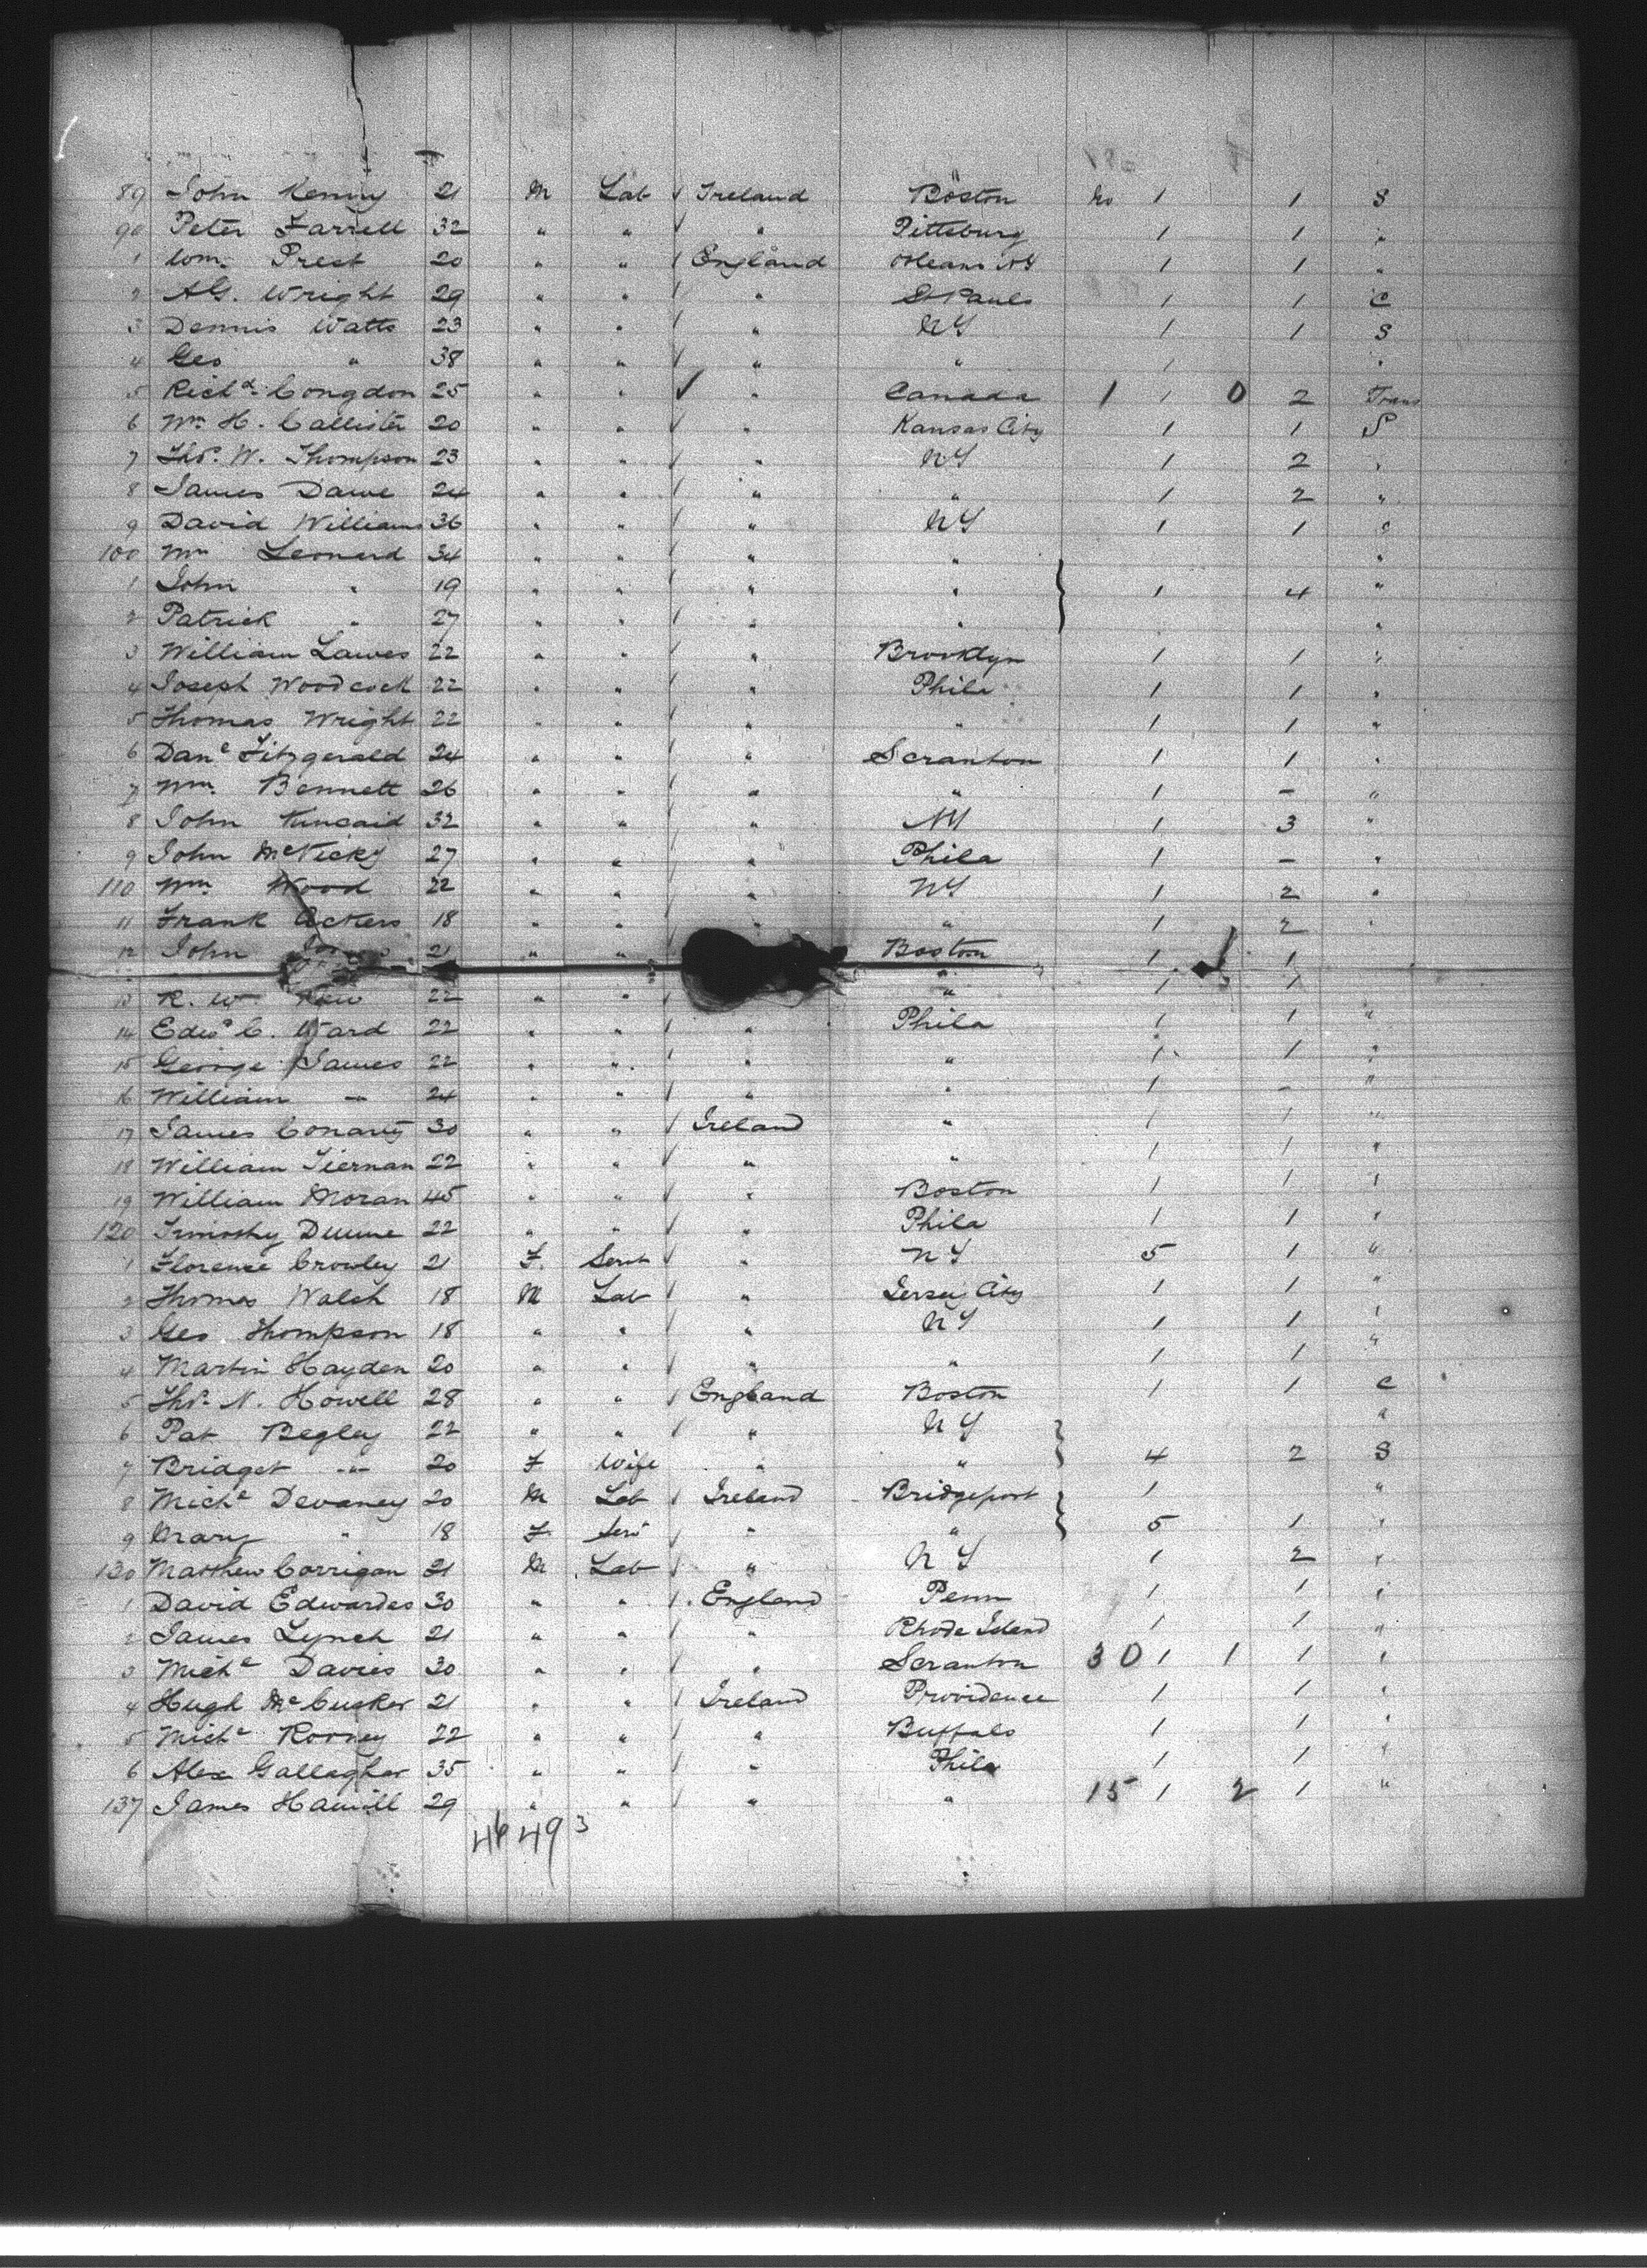 89 John Kenny 21 M Lab Ireland Boston No 1 1 S
90 Peter Farrell 32 " " " Pittsburg 1 1 "
1 Wm. Prest 20 " " England Orleans NY 1 1 "
2 A.G. Wright 29 " " " St Pauls 1 1 C
3 Dennis Watts 23 " " " NY 1 1 S
4 Geo " 38 " " " " 1 "
5 Richd. Congdon 25 " " " Canada 1 1 0 2 Trans
6 Wm H. Callister 20 " " " Kansas City 1 1 S
7 Thos. W. Thompson 23 " " " NY 1 2 "
8 James Dawe 24 " " " " 1 2 "
9 David Williams 36 " " " NY 1 1 "
100 Wm Leonard 34 " " " " "
1 John " 19 " " " " 1 4 "
2 Patrick " 27 " " " " "
3 William Lawes 22 " " " Brooklyn 1 1 "
4 Joseph Woodcock 22 " " " Phila 1 1 "
5 Thomas Wright 22 " " " " 1 1 "
6 Danl Fitzgerald 24 " " " Scranton 1 1 "
7 Wm. Bennett 26 " " " " 1 - "
8 John Kincaid 32 " " " NY 1 3 "
9 John 27 " " " Phila 1 - "
110 Wm Wood 22 " " " NY 1 2 "
11 Frank Ackers 18 " " " " 1 2 "
12 John 21 " " Boston 1 1
13 R. W. 22 " " " 1 1
14 Edwd C. Ward 22 " " " Phila 1 1 "
15 George James 22 " " " " 1 1 "
16 William " 24 " " " " 1 - "
17 James 30 " " Ireland " 1 1 "
18 William Tiernan 22 " " " " 1 1 "
19 William Moran 45 " " " Boston 1 1 "
120 Timothy Dunne 22 " " " Phila 1 1 "
1 Florence Crowley 21 F. Servt " NY 5 1 "
2 Thomas Walsh 18 M Lab " Jersey City 1 1 "
3 Geo Thompson 18 " " " NY 1 1 "
4 Martin Hayden 20 " " " " 1 1 "
5 Thos. N. Howell 28 " " England Boston 1 1 C
6 Pat Begley 22 " " " NY "
7 Bridget " 20 F Wife " " 4 2 S
8 Michl Devaney 20 M Lab Ireland Bridgeport 1 "
9 Mary " 18 F. Serv " " 5 1 "
130 Matthew Corrigan 21 M Lab " NY 1 2 "
1 David Edwardes 30 " " England Penn 1 1 "
2 James Lynch 21 " " " Rhode Island 1 1 "
3 Michl Davies 30 " " " Scranton 30 1 1 1 "
4 Hugh McCusker 21 " " Ireland Providence 1 1 "
5 Michl Rooney 22 " " " Buffalo 1 1 "
6 Alex Gallagher 35 " " " Phila 1 1 "
137 James Hamill 29 " " " " 15 1 2 1 "
46 49 3